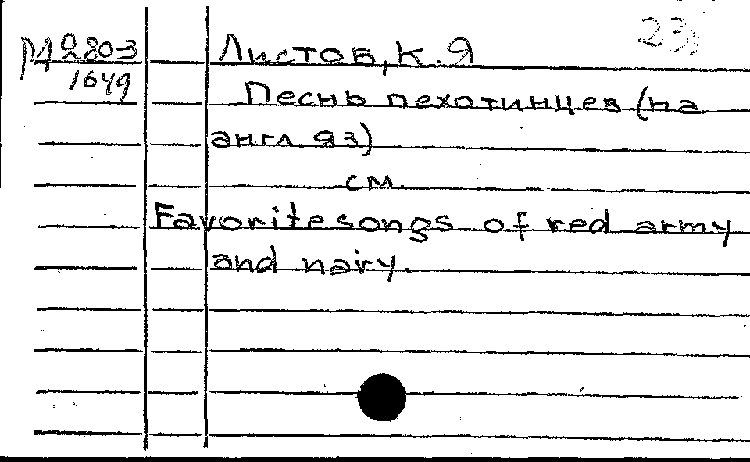 23
М 280-3
1649
Листов, К. Я
Песнь пехотинцев (на
англ. яз)
см.
Favorite songs of red army
and nairy.